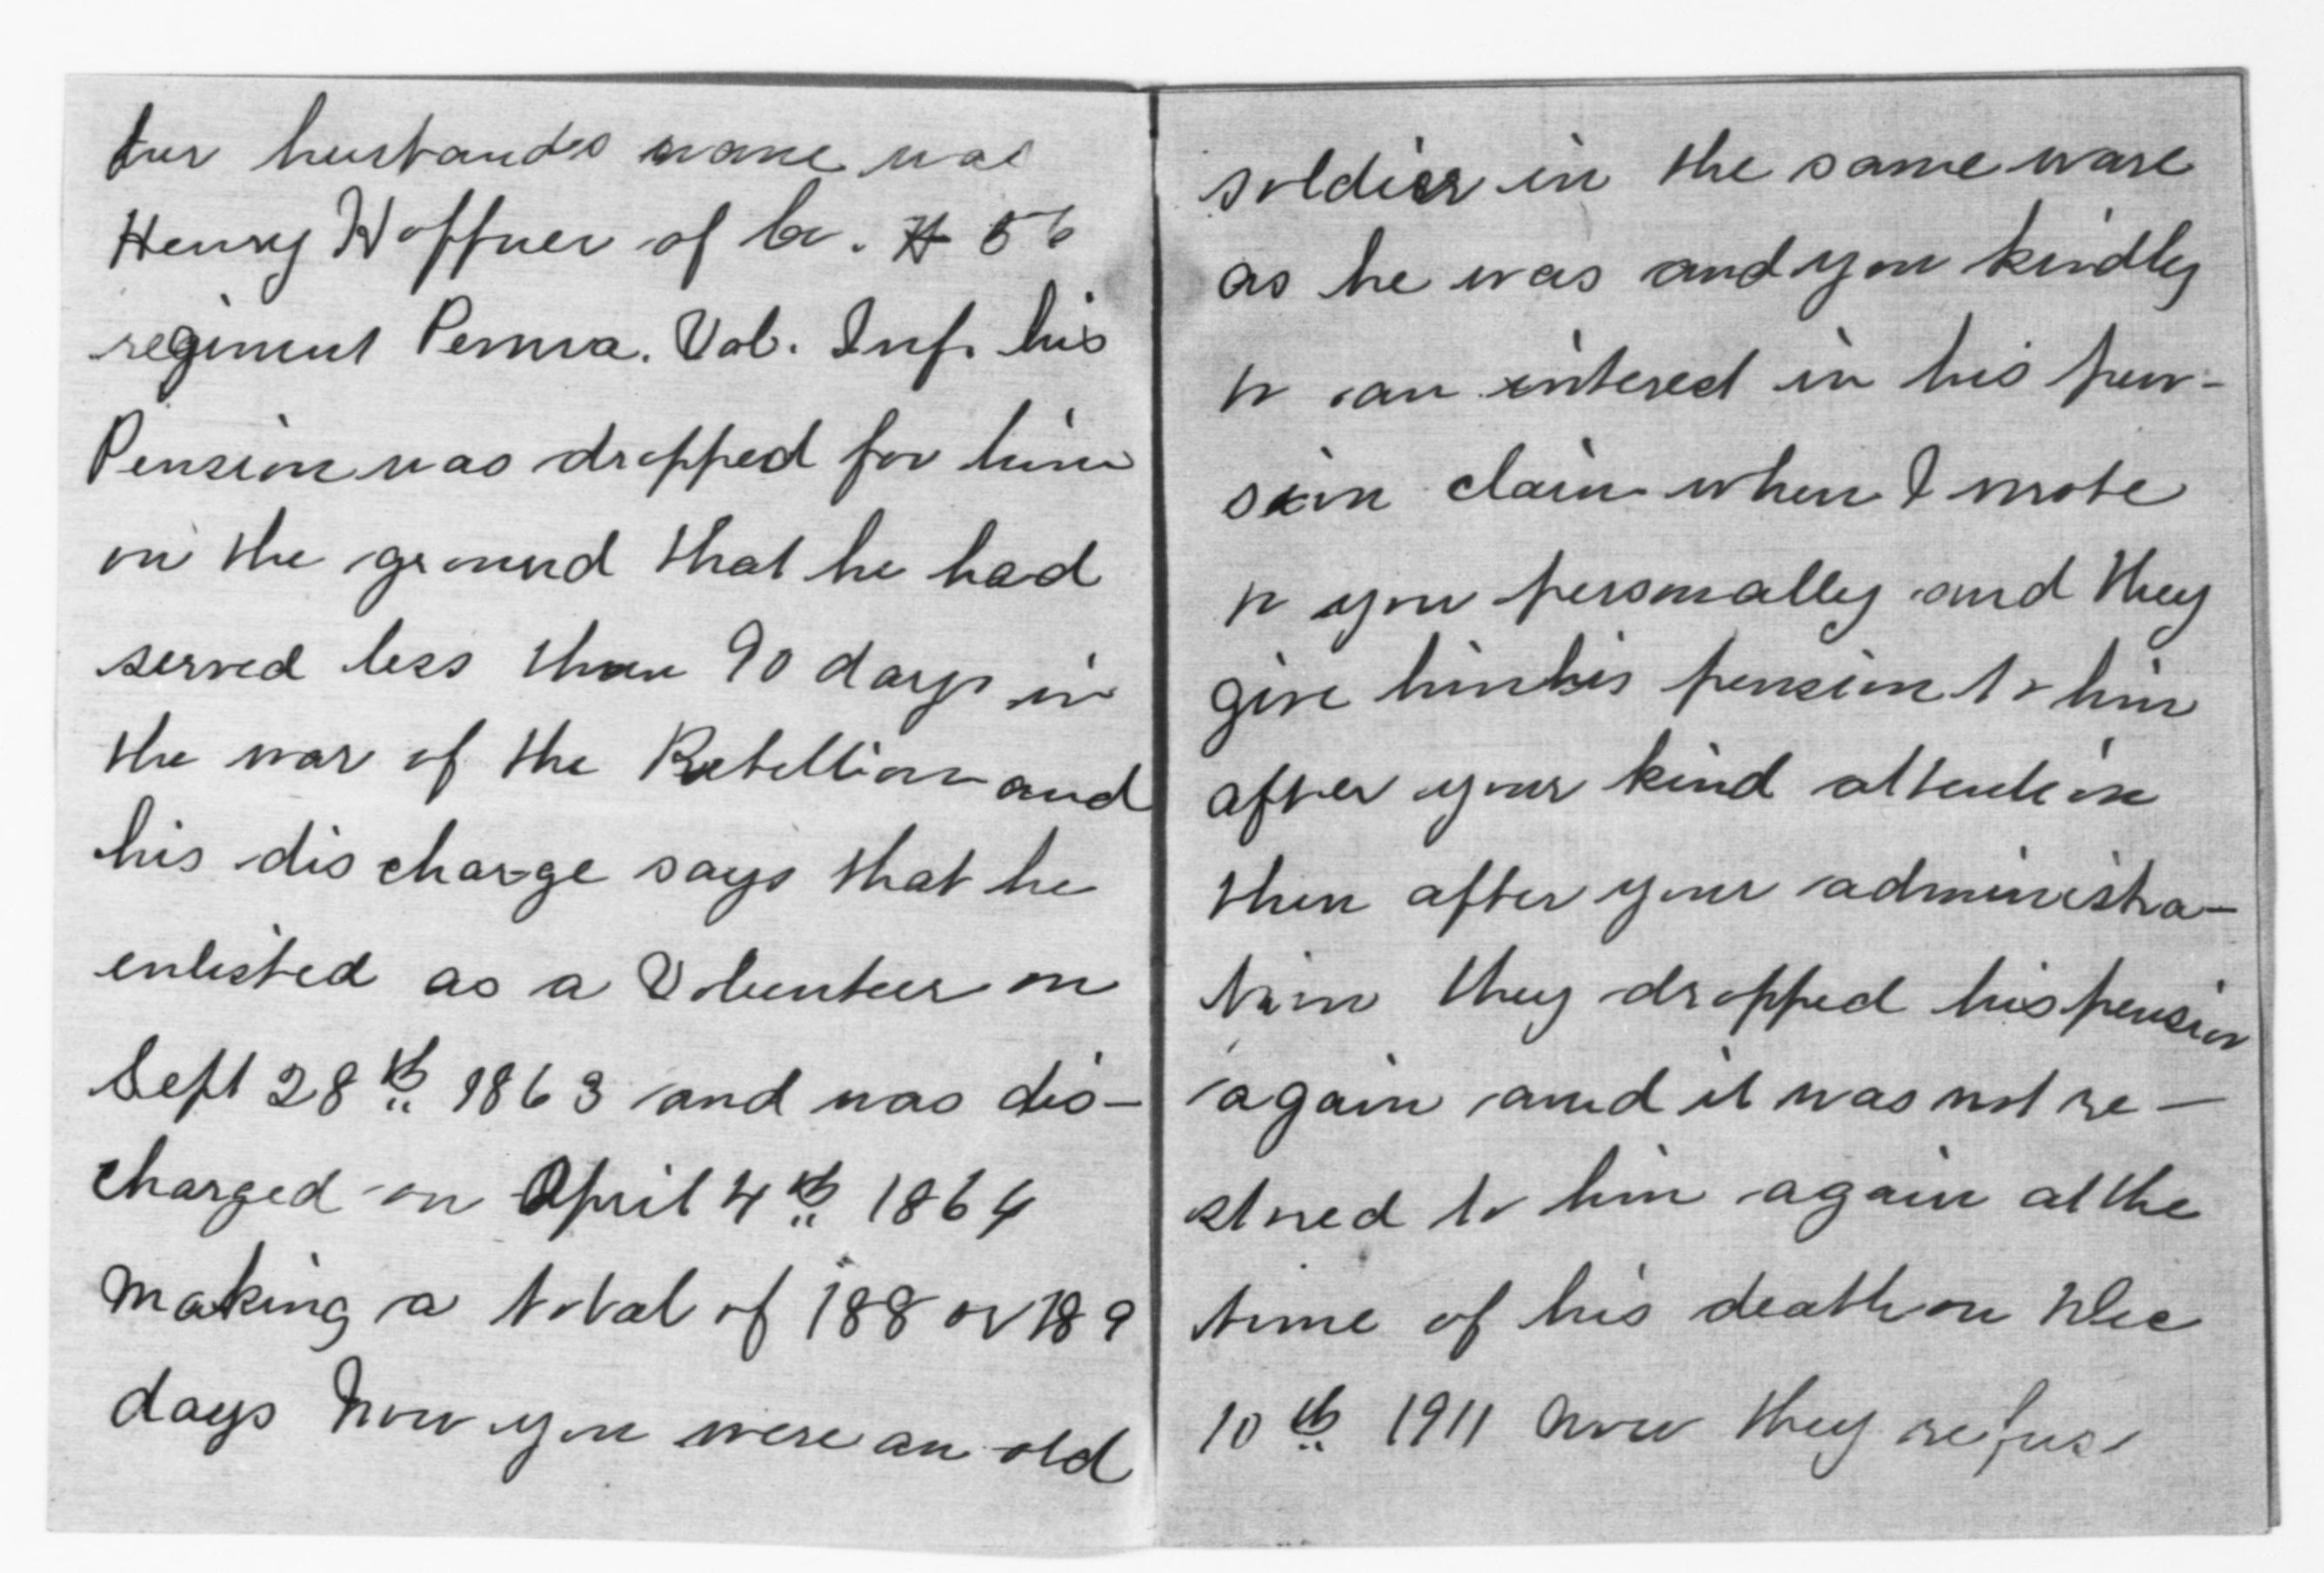 her husbandes name was
Henry Hoffner of Co. H 56
regiment Penna. Vol. Inf. his
Pension was dropped for him
on the ground that he had
served less than 90 days in
the war of the Rebellion and
his discharge says that he
enlisted as a Volunteer on
Sept 28th 1863 and was dis-
charged on April 4th 1864
making a total of 188 or 189
days Now you were an old
soldier in the same ware
as he was and you kindly
to an intered in his pen-
sion claim when I wrote
to you personally and they
give him his pension to him
after your kind attention
then after your administra-
tion they dropped his pension
again and it was not re-
stored to him again at the
time of his death on Dec
10th 1911 Now they refuse